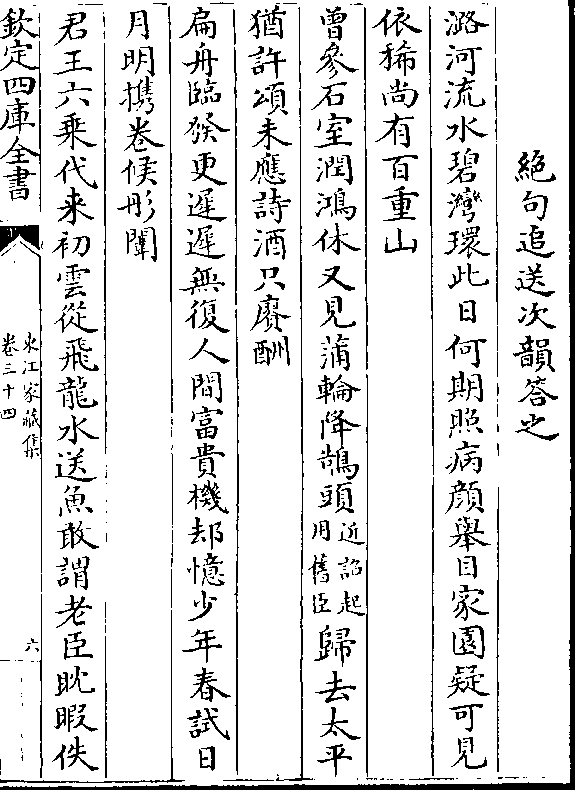 絶句追送次韻答之
潞河流水碧灣環此日何期照病顔舉目家園疑可見
依稀尚有百重山
曾參石室潤鴻休又見蒲輪降鵠頭近詔起用舊臣歸去太平
猶許頌未應詩酒只賡酬
扁舟臨發更遲遲無復人間富貴機却憶少年春試日
月明攜卷候彤闈
君王六乗代来初雲從飛龍水送魚敢謂老臣耽暇佚
欽定四庫全書
東江家藏集
卷三十四
六